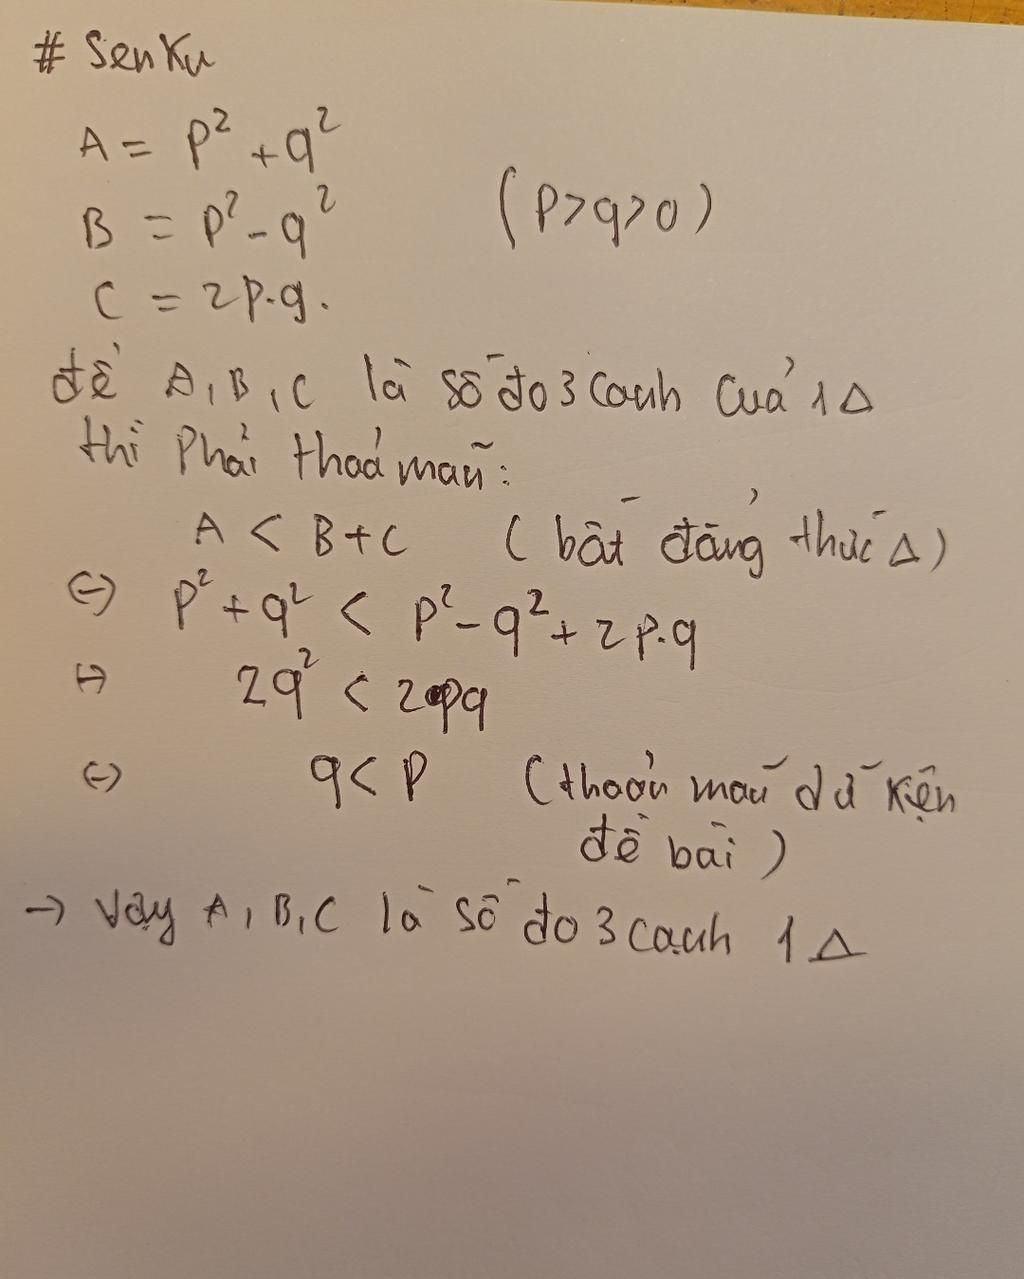 # SenKu
A = p² + q²
B = p² - q² (p>q>0)
C = 2p.q.
để A, B, C là số đo 3 cạnh của 1 Δ
thì phải thoả mãn:
A < B+C (bất đẳng thức Δ)
(-) p² + q² < p² - q² + 2p.q
(-) 2q² < 2pq
(-) q < p (thoả mãn dữ kiện
đề bài)
→ Vậy A, B, C là số đo 3 cạnh 1 Δ